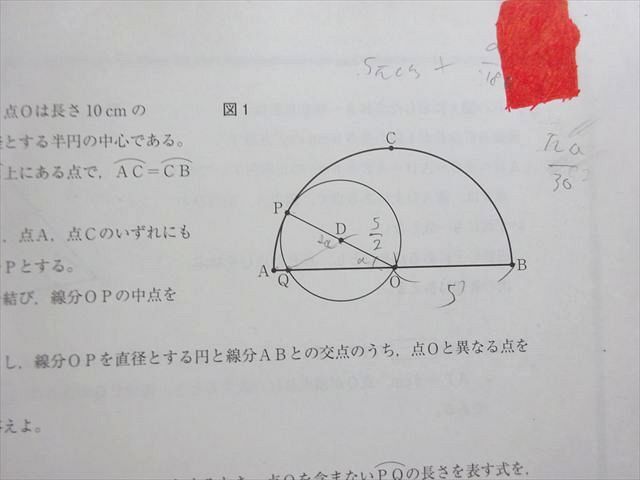 5πcm +
点Oは長さ10cmの
図1
とする半円の中心である。
上にある点で，AC＝CB
πa
36
C
P
5
2
，点A，点Cのいずれにも
D
2a
a
Pとする。
A
Q
O
B
結び，線分OPの中点を
5
し，線分OPを直径とする円と線分ABとの交点のうち，点Oと異なる点を
えよ。
点Oを含まないPQの長さを表す式を，